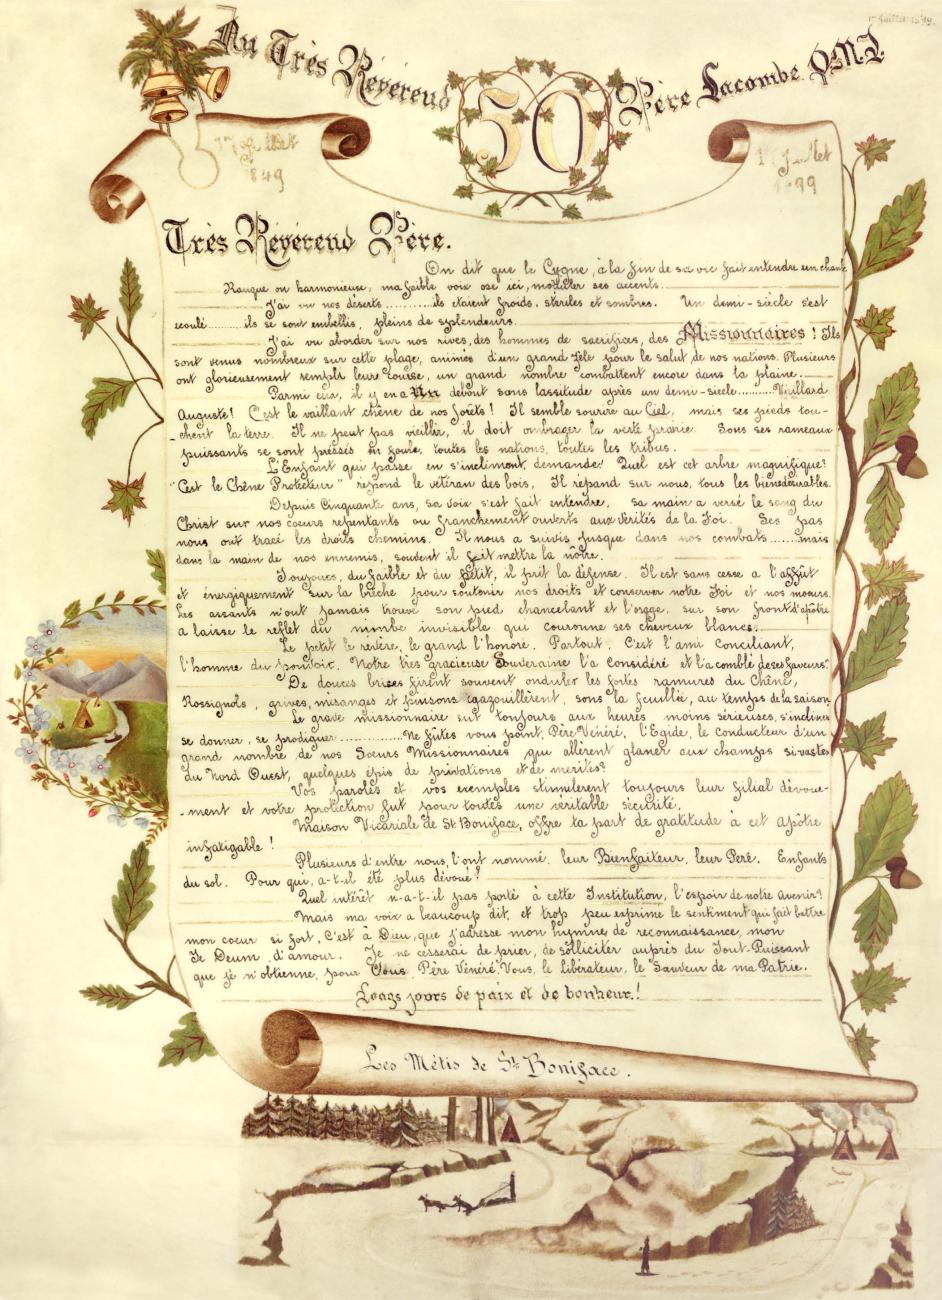 Juillet 1899.
Au Très Révérend
50
Père Lacombe. O.M.I.
17 Juillet
1849
Juillet
1899
Très Révérend Père.
On dit que le Cygne, à la fin de sa vie fait entendre un chant
Rauque ou harmonieuse, ma faible voix ose ici, moduler ses accents.
J'ai vu nos déserts..........ils étaient froids, stériles et sombres. Un demi-siècle s'est
écoulé.........ils se sont embellis, pleins de splendeurs.
J'ai vu aborder sur nos rives, des hommes de sacrifices, des Missionnaires! Ils
sont venus nombreux sur cette plage, animés d'un grand zèle pour le salut de nos nations. Plusieurs
ont glorieusement rempli leur course, un grand nombre combattent encore dans la plaine.
Parmi eux, il y en a Un debout sans lassitude après un demi-siecle..........Vieillard
Auguste! C'est le vaillant chêne de nos forêts! Il semble sourire au Ciel, mais ses pieds tou-
-chent la terre. Il ne peut pas vieillir, il doit ombrager la verte prairie. Sous ses rameaux
puissants se sont pressés en foule, toutes les nations, toutes les tribus.
L'Enfant qui passe en s'inclinant, demande: Quel est cet arbre magnifique?
"C'est le Chêne Protecteur" répond le vétéran des bois, Il répand sur nous, tous les biens désirables.
Depuis Cinquante ans, sa voix s'est fait entendre, sa main a versé le sang du
Christ sur nos coeurs repentants ou franchement ouverts aux vérités de la Foi. Ses pas
nous ont tracé les droits chemins. Il nous a suivis jusque dans nos combats........mais
dans la main de nos ennemis, souvent il fit mettre la nôtre.
Toujours, du faible et du petit, il prit la défense. Il est sans cesse a l'affût
et énergiquement sur la brèche pour soutenir nos droits et conserver notre Foi et nos moeurs.
Les assants n'ont jamais trouvé son pied chancelant et l'orage, sur son front d'apôtre
a laisse le reflet du nimbe invisible qui couronne ses cheveux blancs.
Le petit le revère, le grand l'honore. Partout. C'est l'ami Conciliant,
l'homme du pouvoir. Notre très gracieuse Souveraine l'a considéré et l'a comblé de ses faveurs.
De douces brises firent souvent onduler les fortes ramures du Chêne,
Rossignols, grives, mésanges et pinsons gazouillèrent, sous la feuillée, au temps de la saison
Le grave missionnaire sut toujours aux heures moins sérieuses, s'incliner
se donner, se prodiguer..............Ne fûtes vous point, Père Vénéré, l'Egide, le Conducteur d'un
grand nombre de nos Soeurs Missionnaires qui allèrent glaner aux champs si vastes
du Nord Ouest, quelques épis de privations et de merites?
Vos paroles et vos exemples stimulerent toujours leur filial dévoue-
-ment et votre protection fut pour toutes une veritable sécurité.
Maison Vicariale de St. Boniface, offre ta part de gratitude à cet apôtre
infatigable!
Plusieurs d'entre nous, l'ont nommé, leur Bienfaiteur, leur Peré. Enfants
du sol. Pour qui, a-t-il été plus dévoué?
Quel intérêt n-a-t-il pas porté à cette Institution, l'espoir de notre avenir?
Mais ma voix a beaucoup dit, et trop peu exprimé le sentiment qui fait battre
mon coeur si fort, C'est à Dieu, que j'adresse mon hymne de reconnaissance, mon
Te Deum d'amour. Je ne cesserai de prier, de solliciter auprès du Tout-Puissant
que je n'obtienne, pour Vous, Père Vénéré, Vous, le Libérateur, le Sauveur de ma Patrie.
Longs jours de paix et de bonheur!
Les Métis de St. Boniface.